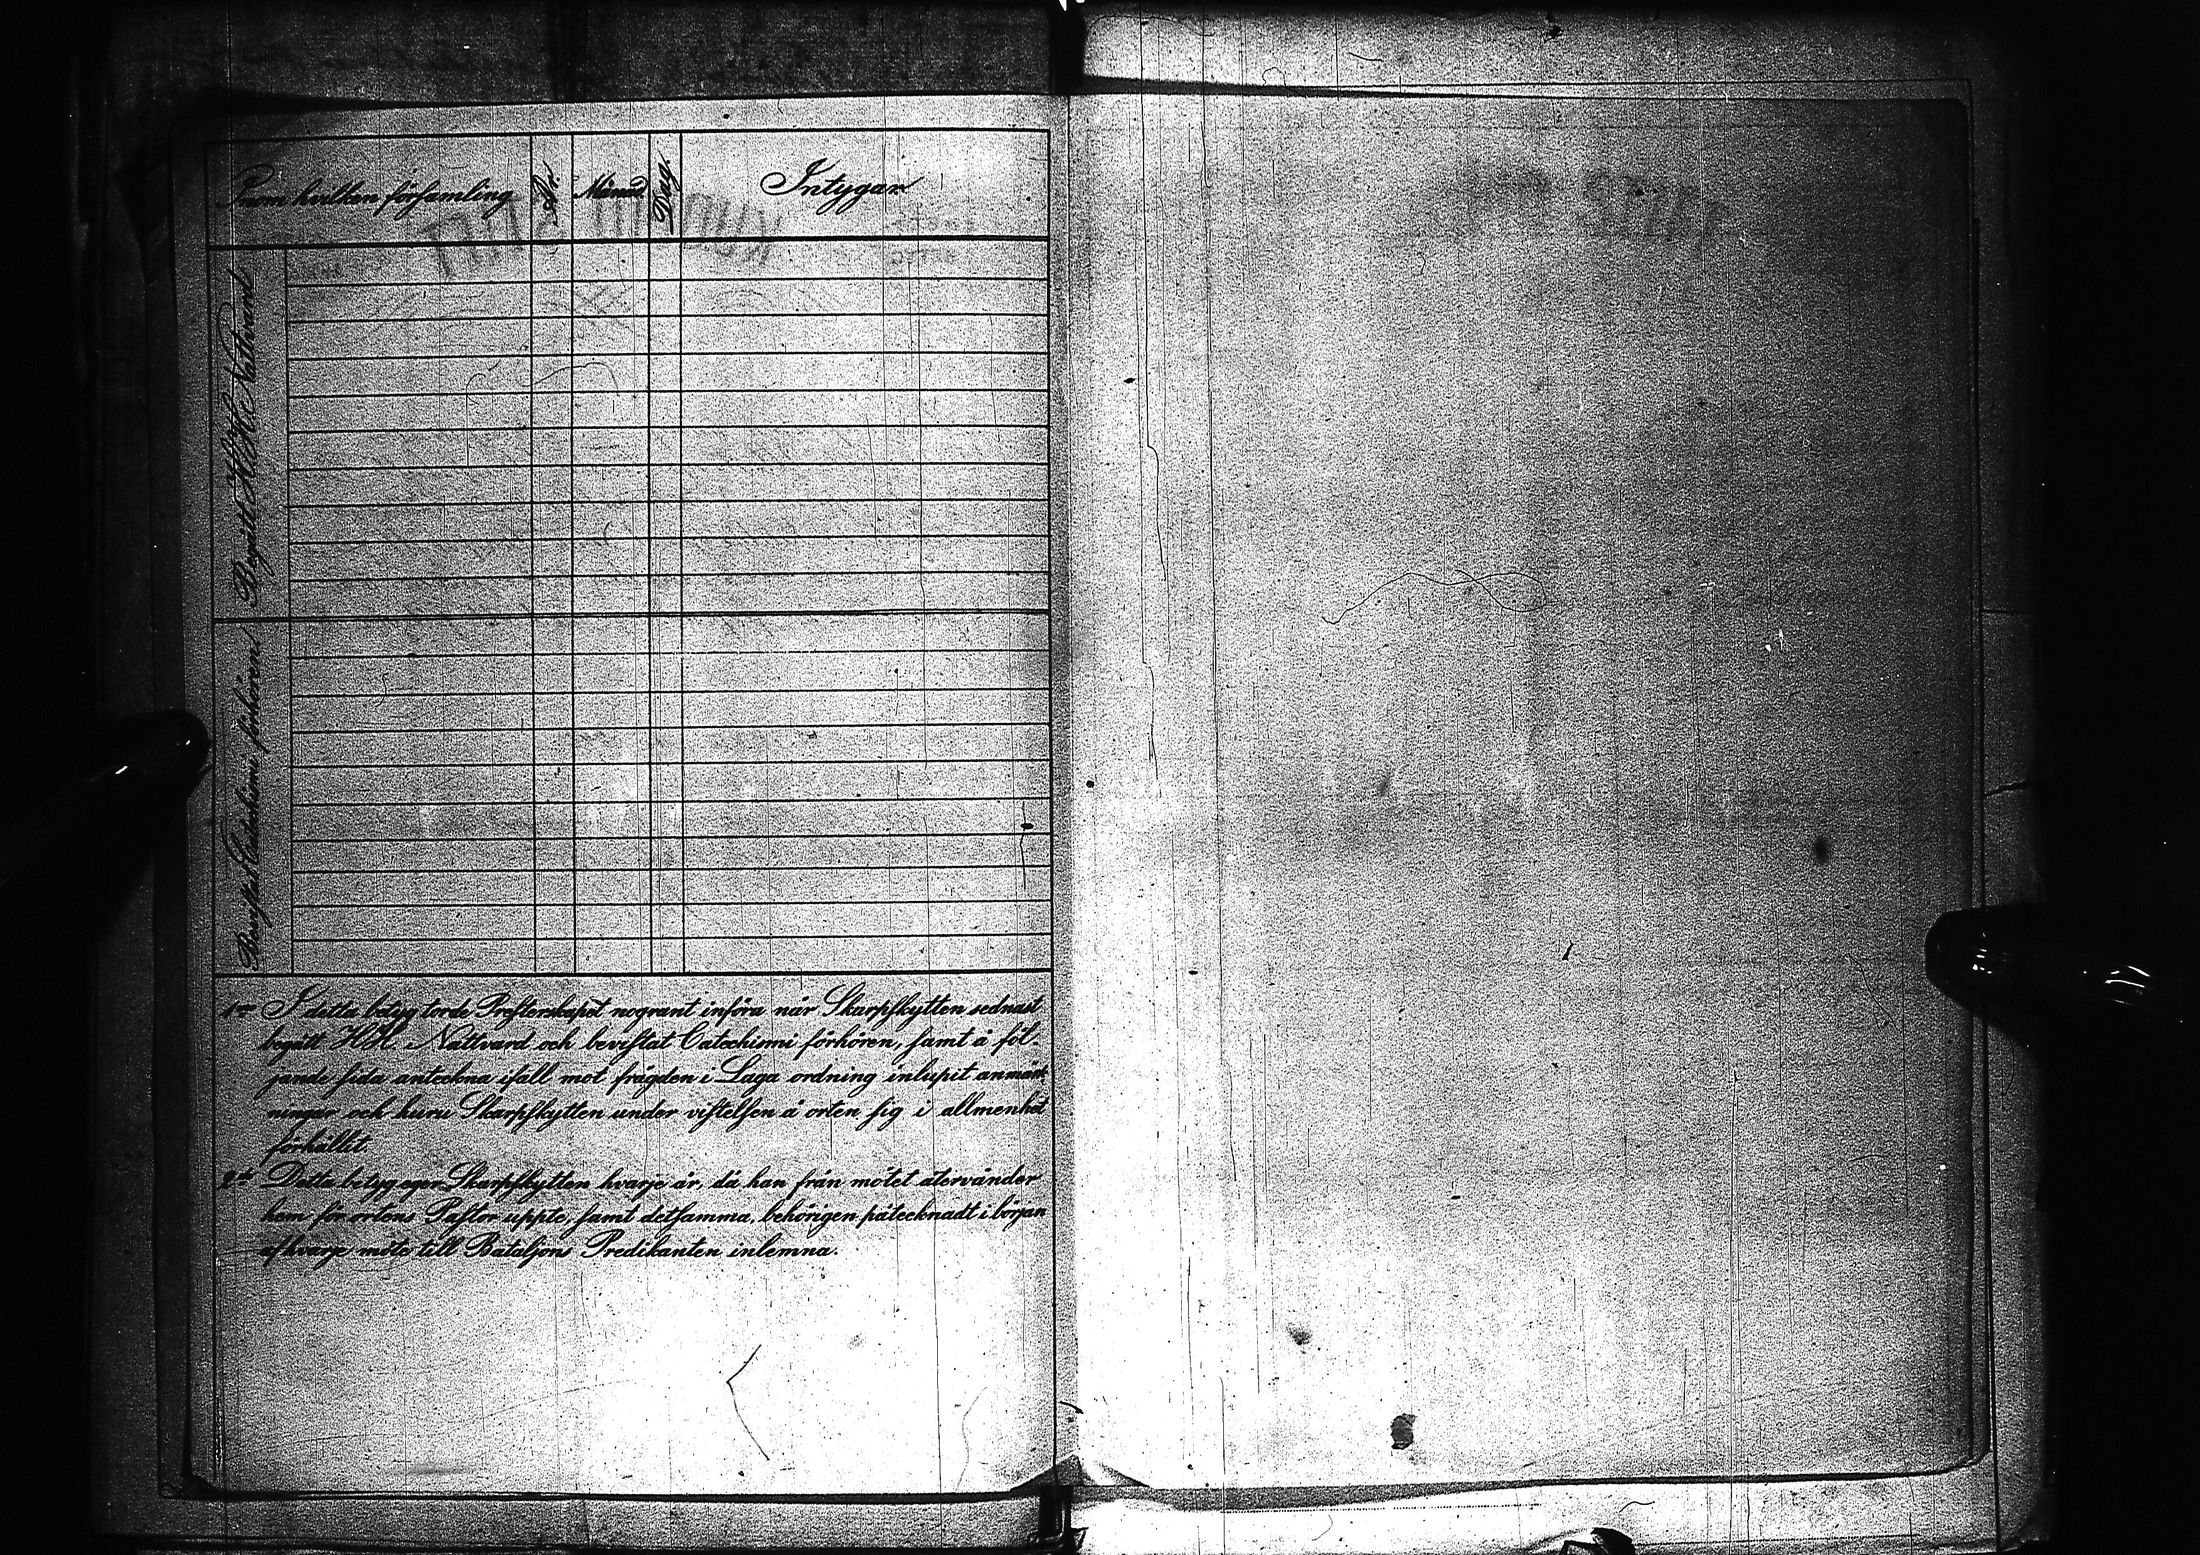 Inom hvilken församling År Månad Dag. Intygar
Begått H.H. Nattvard
Bevistat Catechismi förhören
1o I detta betyg torde Presterskapet nogrant införa när Skarpskytten sednast
begått H.H. Nattvard och bevistat Catechismi förhören, samt å föl-
jande sida anteckna ifall mot frägden i Laga ordning inlupit anmärk
ningar och huru Skarpskytten under vistelsen å orten sig i allmenhet
förhållit
Detta betyg eger Skarpskytten hvarje år, då han från mötet återvänder
hem för ortens Pastor uppte, samt detsamma, behörigen påtecknadt i början
af hvarje möte till Bataljons Predikanten inlemna.